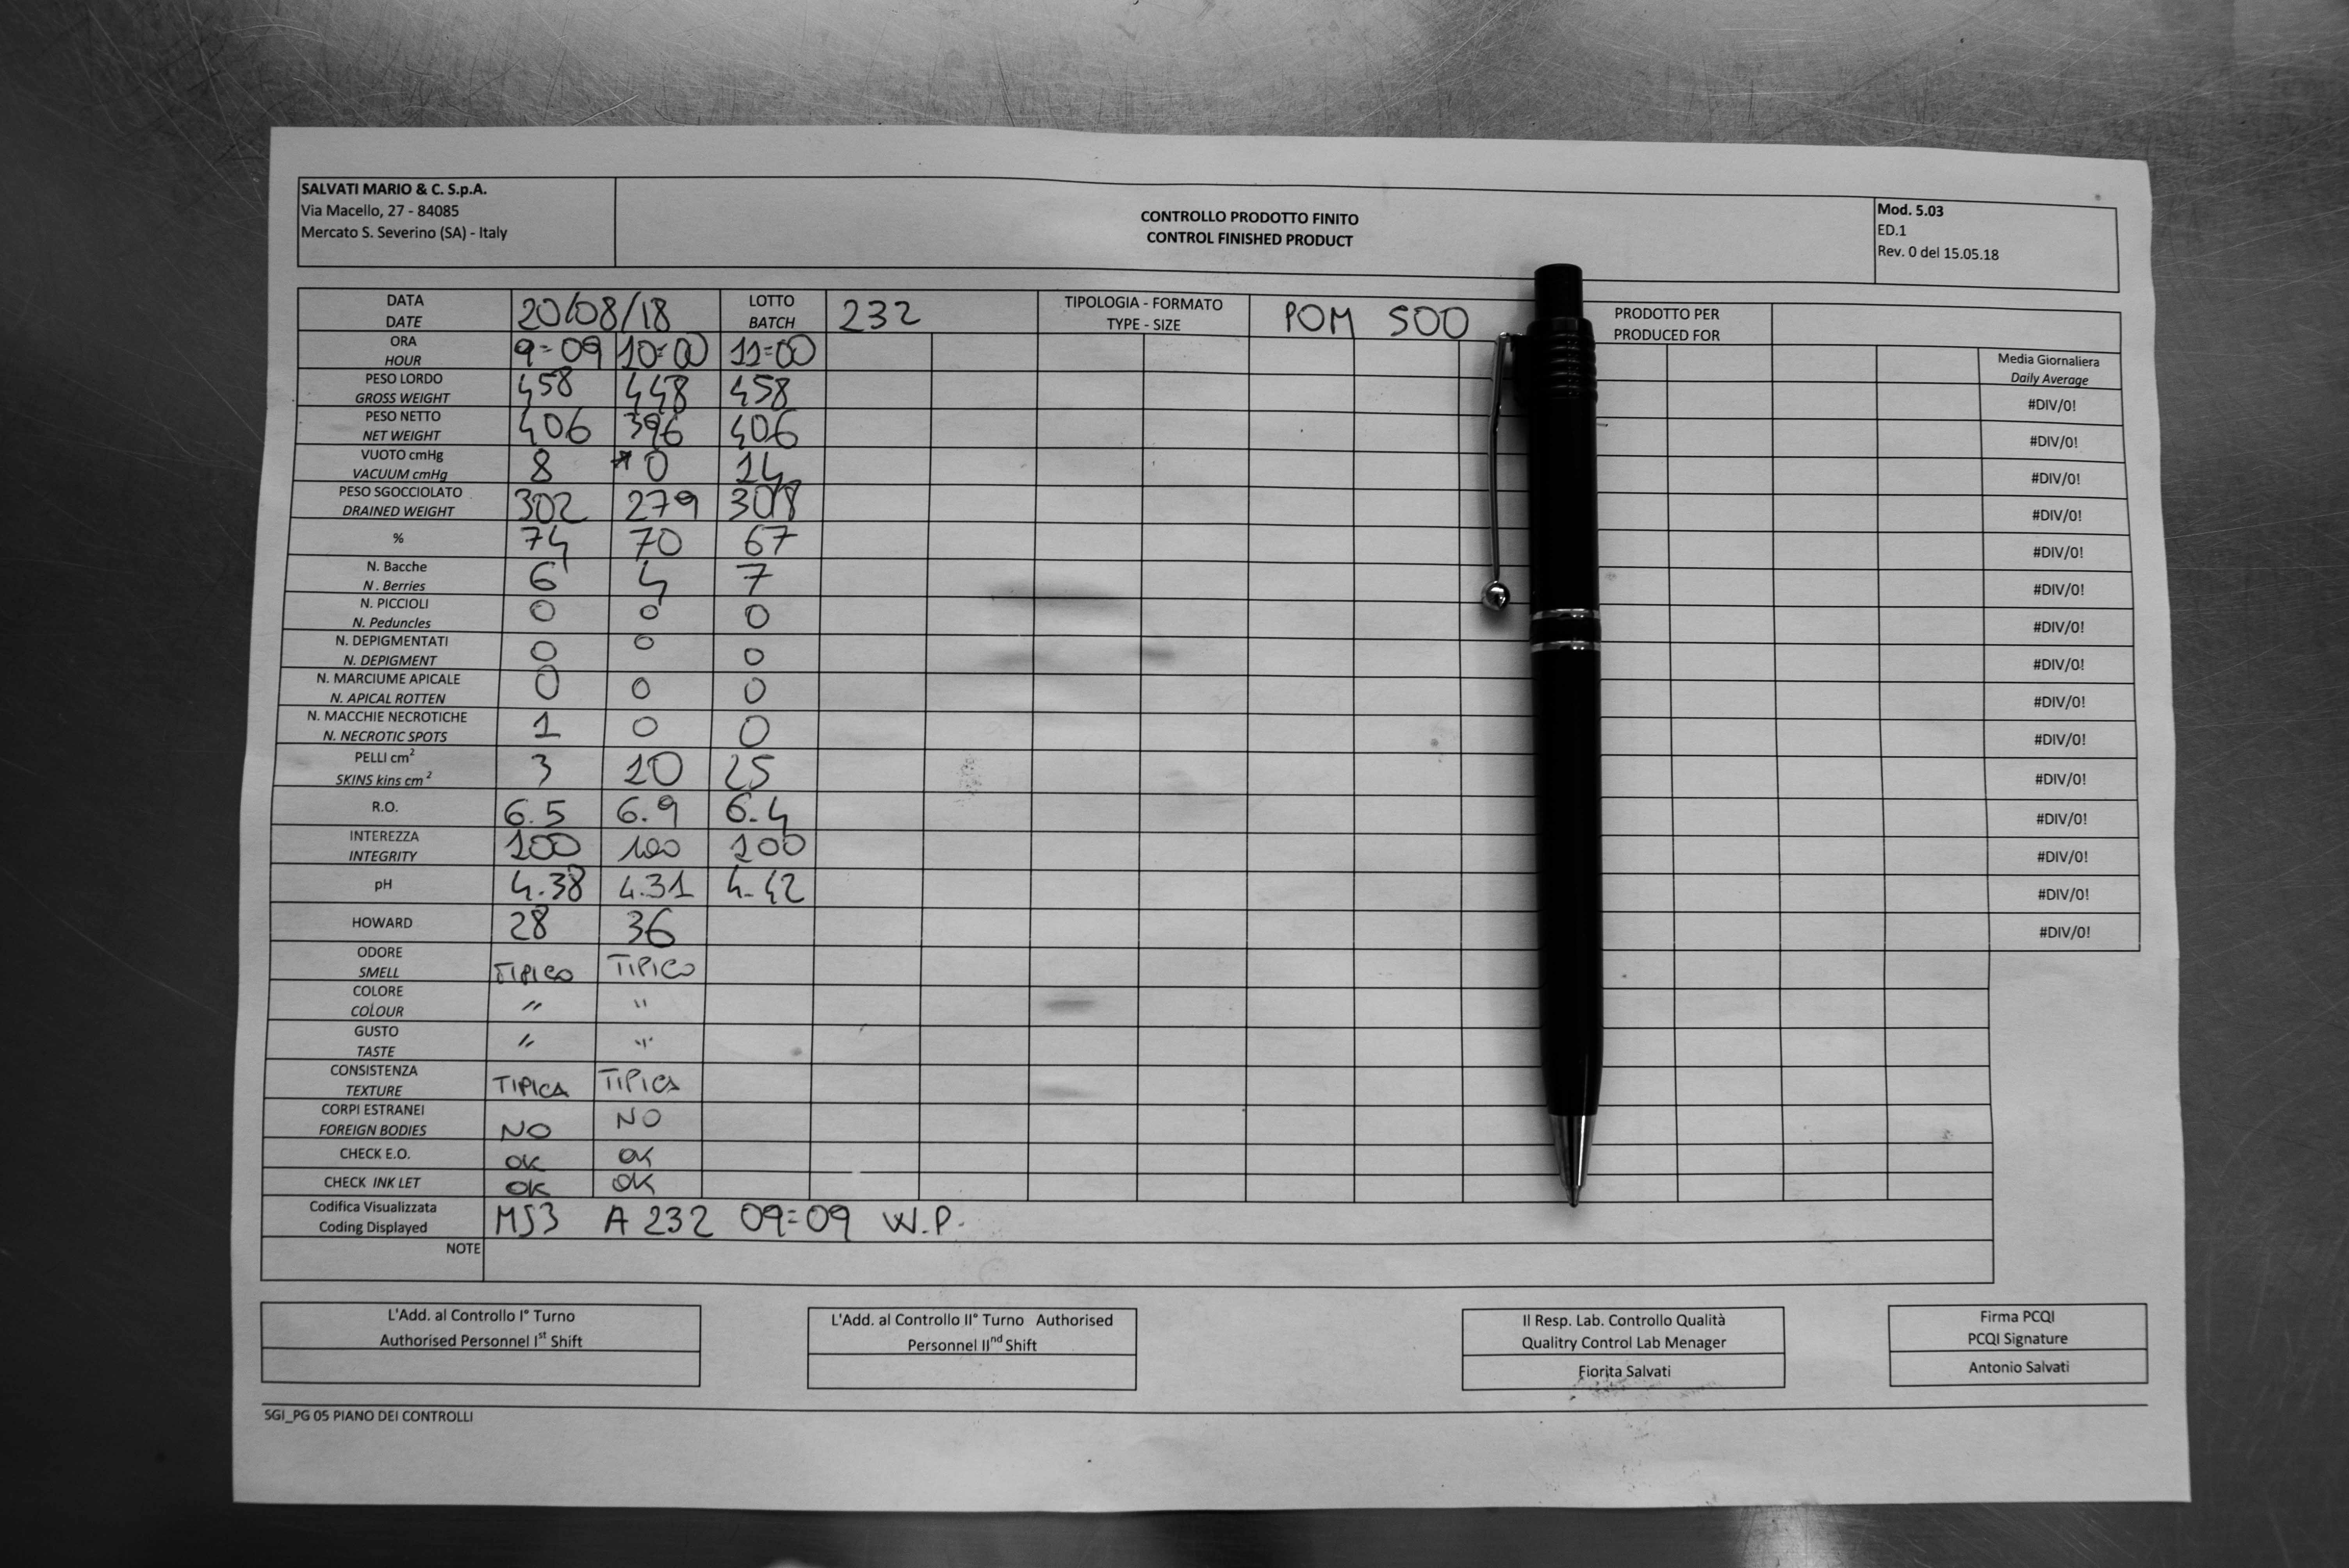 SALVATI MARIO & C. S.p.A.
Via Macello, 27 - 84085
Mercato S. Severino (SA) - Italy
CONTROLLO PRODOTTO FINITO
CONTROL FINISHED PRODUCT
Mod. 5.03
ED.1
Rev. 0 del 15.05.18
DATA
DATE
20/08/18
LOTTO
BATCH
232
TIPOLOGIA - FORMATO
TYPE - SIZE
POM 500
PRODOTTO PER
PRODUCED FOR
ORA
HOUR
9=09 10=00 11=00
Media Giornaliera
Daily Average
PESO LORDO
GROSS WEIGHT
458 448 458 #DIV/0!
PESO NETTO
NET WEIGHT
406 396 406 #DIV/0!
VUOTO cmHg
VACUUM cmHg
8 0 14 #DIV/0!
PESO SGOCCIOLATO
DRAINED WEIGHT
302 279 #DIV/0!
% 74 70 67 #DIV/0!
N. Bacche
N. Berries
6 4 7 #DIV/0!
N. PICCIOLI
N. Peduncles
0 0 0 #DIV/0!
N. DEPIGMENTATI
N. DEPIGMENT
0 0 0 #DIV/0!
N. MARCIUME APICALE
N. APICAL ROTTEN
0 0 0 #DIV/0!
N. MACCHIE NECROTICHE
N. NECROTIC SPOTS
1 0 0 #DIV/0!
PELLI cm²
SKINS kins cm²
3 10 25 #DIV/0!
R.O. 6.5 6.9 6.4 #DIV/0!
INTEREZZA
INTEGRITY
100 100 100 #DIV/0!
pH 4.38 4.31 4.42 #DIV/0!
HOWARD 28 36 #DIV/0!
ODORE
SMELL
TIPICO TIPICO
COLORE
COLOUR
" "
GUSTO
TASTE
" "
CONSISTENZA
TEXTURE
TIPICA TIPICA
CORPI ESTRANEI
FOREIGN BODIES
NO NO
CHECK E.O. OK OK
CHECK INK LET OK OK
Codifica Visualizzata
Coding Displayed
MS3 A 232 09=09 W.P.
NOTE
L'Add. al Controllo I° Turno
Authorised Personnel Iˢᵗ Shift
L'Add. al Controllo II° Turno Authorised
Personnel IIⁿᵈ Shift
Il Resp. Lab. Controllo Qualità
Qualitry Control Lab Menager
Fiorita Salvati
Firma PCQI
PCQI Signature
Antonio Salvati
SGI_PG 05 PIANO DEI CONTROLLI